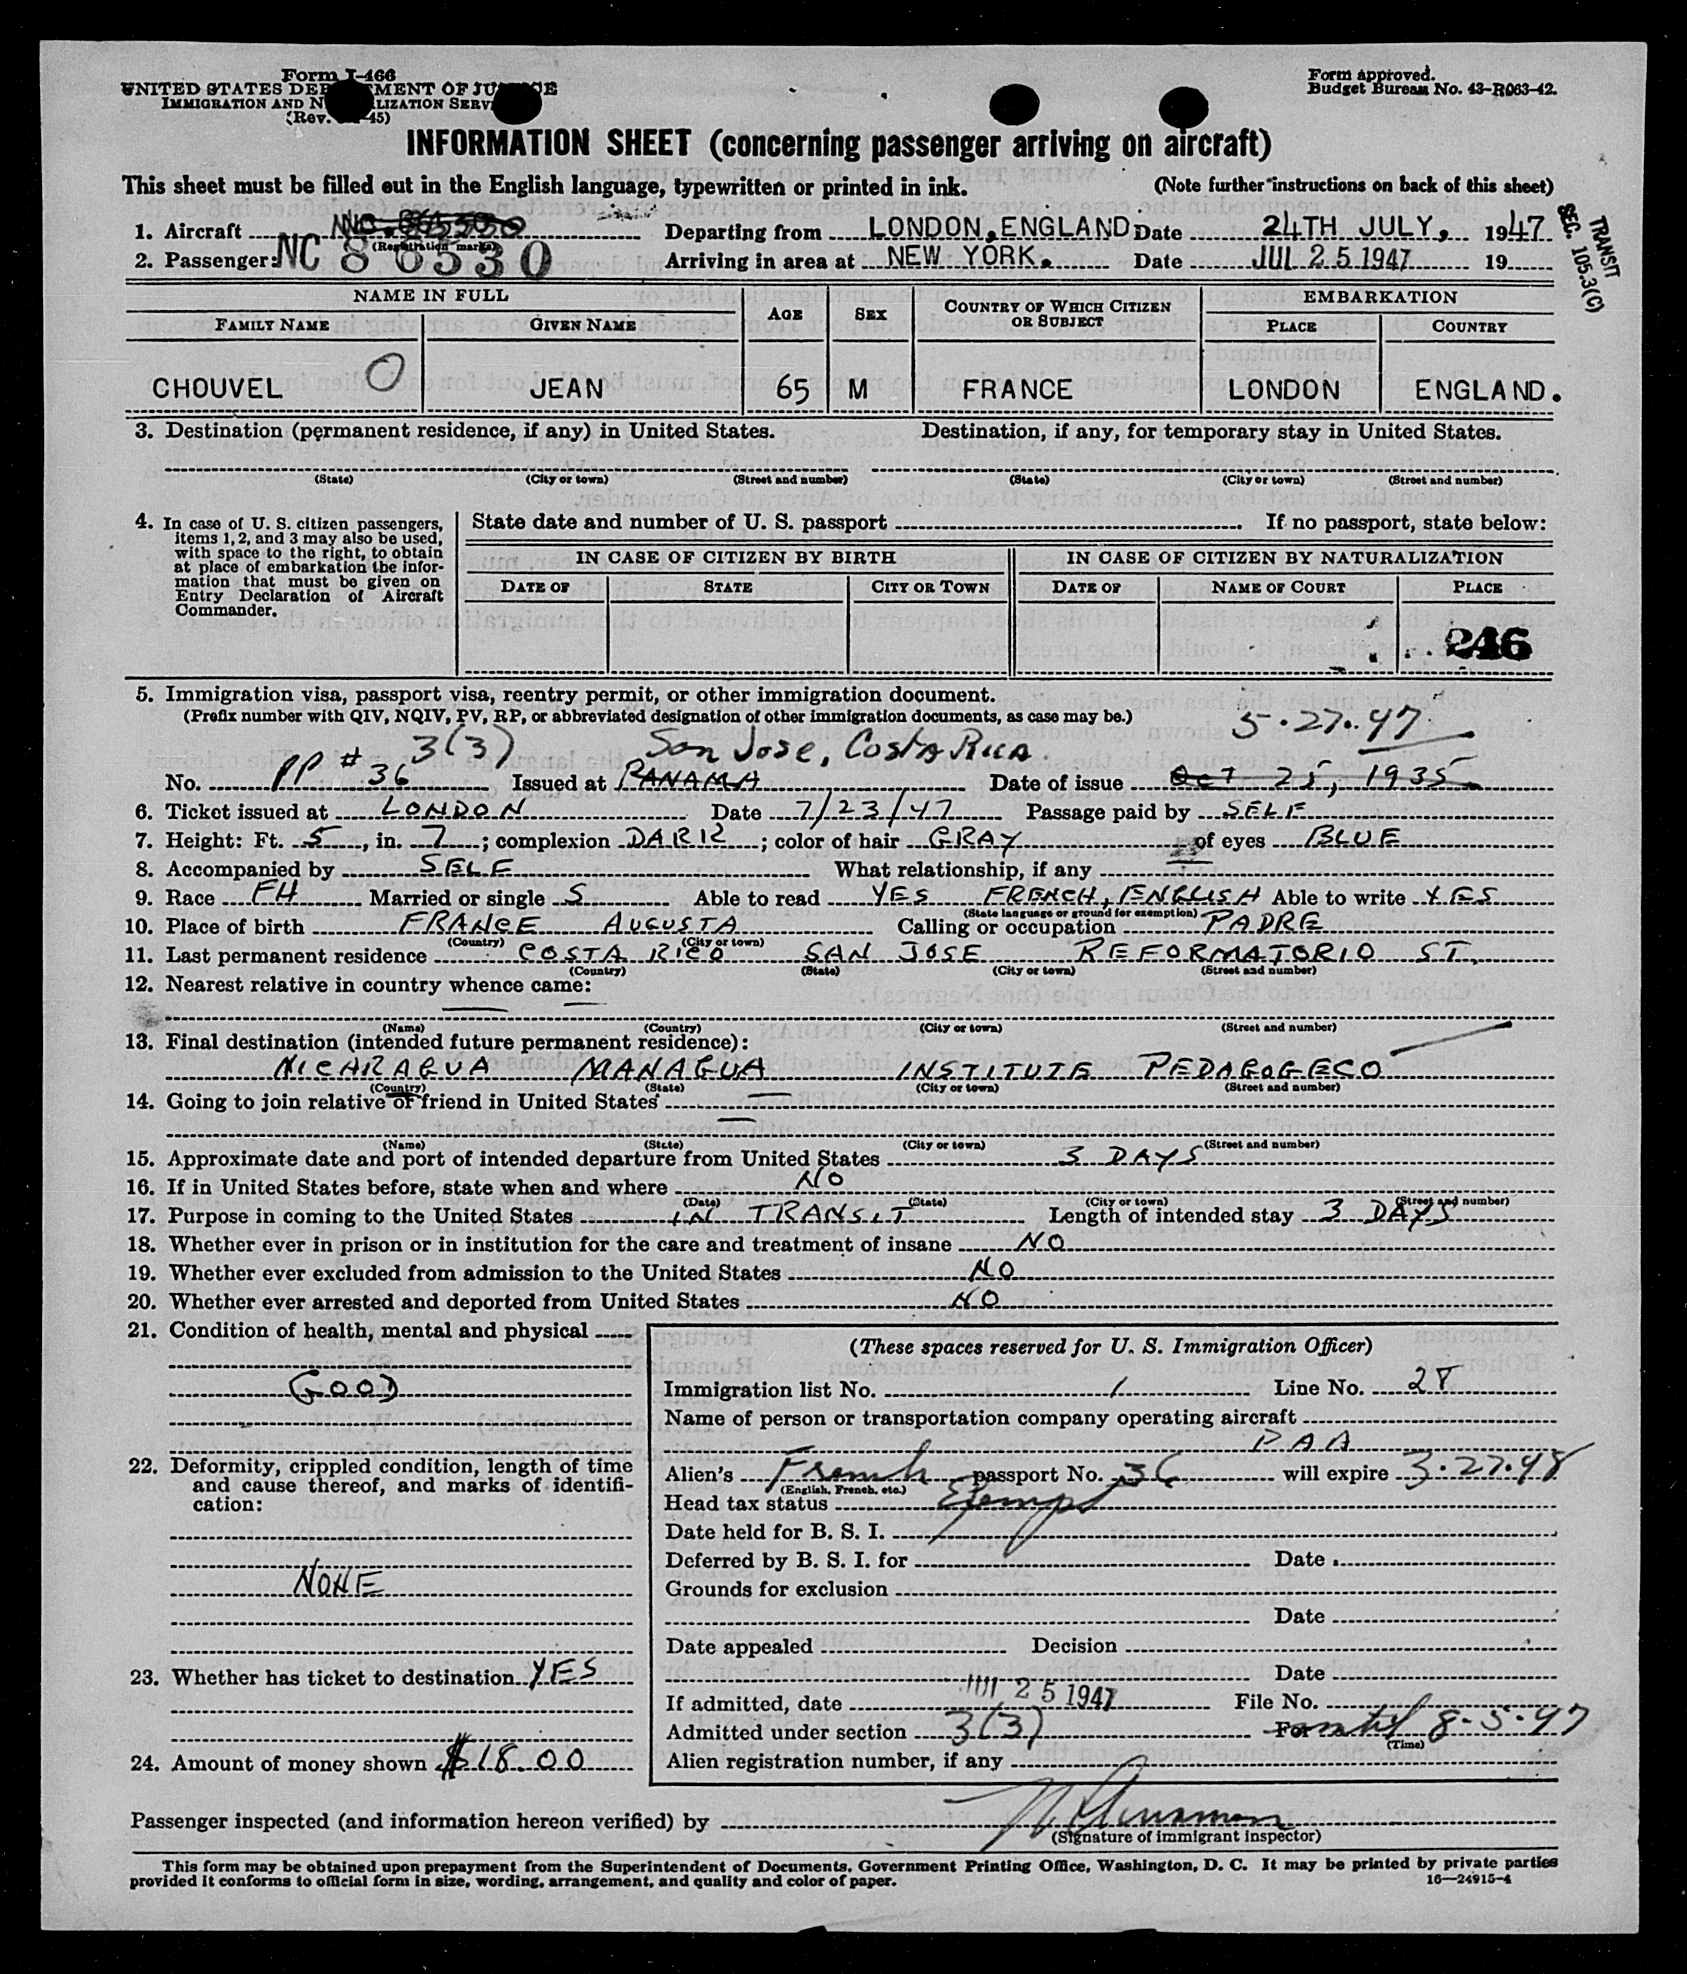 Form I-466
UNITED STATES DEPARTMENT OF JUSTICE
IMMIGRATION AND NATURALIZATION SERVICE
(Rev. 45)
Form approved.
Budget Bureau No. 43-R063-42.
INFORMATION SHEET (concerning passenger arriving on aircraft)
This sheet must be filled out in the English language, typewritten or printed in ink. (Note further instructions on back of this sheet)
1. Aircraft (Registration marks) Departing from LONDON, ENGLAND Date 24TH JULY, 1947
2. Passenger: NC 86530 Arriving in area at NEW YORK. Date JUL 25 1947 19
TRANSIT
SEC. 105.3(C)
NAME IN FULL AGE SEX COUNTRY OF WHICH CITIZEN OR SUBJECT EMBARKATION
FAMILY NAME GIVEN NAME PLACE COUNTRY
CHOUVEL O JEAN 65 M FRANCE LONDON ENGLAND.
3. Destination (permanent residence, if any) in United States. Destination, if any, for temporary stay in United States.
(State) (City or town) (Street and number) (State) (City or town) (Street and number)
4. In case of U. S. citizen passengers, items 1, 2, and 3 may also be used, with space to the right, to obtain at place of embarkation the information that must be given on Entry Declaration of Aircraft Commander.
State date and number of U. S. passport If no passport, state below:
IN CASE OF CITIZEN BY BIRTH IN CASE OF CITIZEN BY NATURALIZATION
DATE OF STATE CITY OR TOWN DATE OF NAME OF COURT PLACE
246
5. Immigration visa, passport visa, reentry permit, or other immigration document.
(Prefix number with QIV, NQIV, PV, RP, or abbreviated designation of other immigration documents, as case may be.)
3(3) San Jose, Costa Rica. 5·27·47
No. PP # 36 Issued at PANAMA Date of issue Oct 25, 1935
6. Ticket issued at LONDON Date 7/23/47 Passage paid by SELF
7. Height: Ft. 5, in. 7; complexion DARK; color of hair GRAY of eyes BLUE
8. Accompanied by SELF What relationship, if any
9. Race FH Married or single S Able to read YES FRENCH, ENGLISH Able to write YES
(State language or ground for exemption)
10. Place of birth FRANCE AUGUSTA Calling or occupation PADRE
(Country) (City or town)
11. Last permanent residence COSTA RICO SAN JOSE REFORMATORIO ST.
(Country) (State) (City or town) (Street and number)
12. Nearest relative in country whence came:
(Name) (Country) (City or town) (Street and number)
13. Final destination (intended future permanent residence):
NICARAGUA MANAGUA INSTITUTE PEDAGOGECO
(Country) (State) (City or town) (Street and number)
14. Going to join relative or friend in United States
(Name) (State) (City or town) (Street and number)
15. Approximate date and port of intended departure from United States 3 DAYS
16. If in United States before, state when and where NO
(Date) (State) (City or town) (Street and number)
17. Purpose in coming to the United States IN TRANSIT Length of intended stay 3 DAYS
18. Whether ever in prison or in institution for the care and treatment of insane NO
19. Whether ever excluded from admission to the United States NO
20. Whether ever arrested and deported from United States NO
21. Condition of health, mental and physical
GOOD
22. Deformity, crippled condition, length of time and cause thereof, and marks of identification:
NONE
23. Whether has ticket to destination YES
24. Amount of money shown $18.00
(These spaces reserved for U. S. Immigration Officer)
Immigration list No. 1 Line No. 28
Name of person or transportation company operating aircraft
PAA
Alien's French passport No. 36 will expire 3·27·48
(English, French, etc.)
Head tax status Exempt
Date held for B. S. I.
Deferred by B. S. I. for Date
Grounds for exclusion
Date
Date appealed Decision
Date
If admitted, date JUL 25 1947 File No.
Admitted under section 3(3) For until 8-5-47
(Time)
Alien registration number, if any
Passenger inspected (and information hereon verified) by
(Signature of immigrant inspector)
This form may be obtained upon prepayment from the Superintendent of Documents, Government Printing Office, Washington, D. C. It may be printed by private parties
provided it conforms to official form in size, wording, arrangement, and quality and color of paper.
16—24915-4